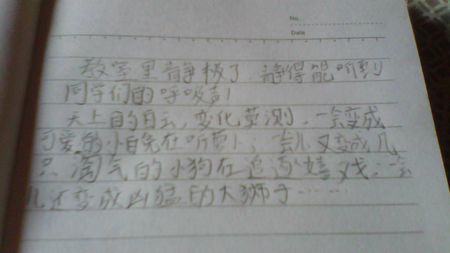 No.
Date
教室里静极了,静得能听到
同学们的呼吸声!
天上的白云,变化莫测,一会变成
可爱的小白兔在吃萝卜,会儿又变成几
只淘气的小狗在追逐嬉戏,一会
儿还变成凶猛的大狮子……